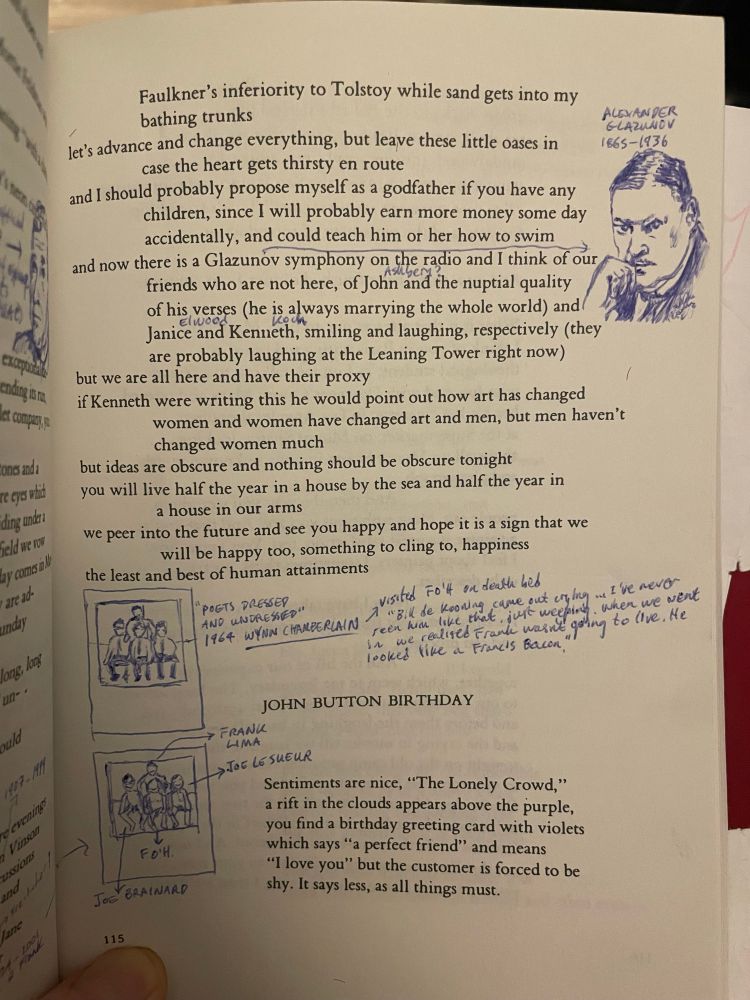 Faulkner's inferiority to Tolstoy while sand gets into my
bathing trunks
let's advance and change everything, but leave these little oases in
case the heart gets thirsty en route
and I should probably propose myself as a godfather if you have any
children, since I will probably earn more money some day
accidentally, and could teach him or her how to swim
and now there is a Glazunov symphony on the radio and I think of our
Ashbery?
friends who are not here, of John and the nuptial quality
of his verses (he is always marrying the whole world) and
Elwood Koch
Janice and Kenneth, smiling and laughing, respectively (they
are probably laughing at the Leaning Tower right now)
but we are all here and have their proxy
if Kenneth were writing this he would point out how art has changed
women and women have changed art and men, but men haven't
changed women much
but ideas are obscure and nothing should be obscure tonight
you will live half the year in a house by the sea and half the year in
a house in our arms
we peer into the future and see you happy and hope it is a sign that we
will be happy too, something to cling to, happiness
the least and best of human attainments
ALEXANDER
GLAZUNOV
1865-1936
"POETS DRESSED
AND UNDRESSED"
1964 WYNN CHAMBERLAIN
visited FO'H on death bed
"Bill de Kooning came out crying ... I've never
seen him like that, just weeping. When we went
in we realised Frank wasn't going to live. He
looked like a Francis Bacon."
JOHN BUTTON BIRTHDAY
FRANK
LIMA
JOE LESUEUR
FO'H.
JOE BRAINARD
Sentiments are nice, "The Lonely Crowd,"
a rift in the clouds appears above the purple,
you find a birthday greeting card with violets
which says "a perfect friend" and means
"I love you" but the customer is forced to be
shy. It says less, as all things must.
115
exceptional
ending in run,
let company, yo
tones and a
re eyes which
iding under a
field we vow
lay comes in
y are ad-
unday
long, long
un-
ould
1907-1999
evenings
n Vinson
cussions
and
Jane